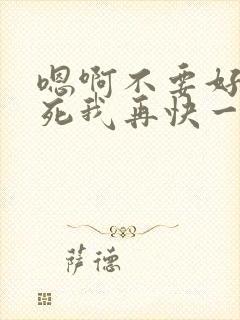 嗯啊不要好
死我再快一
萨德